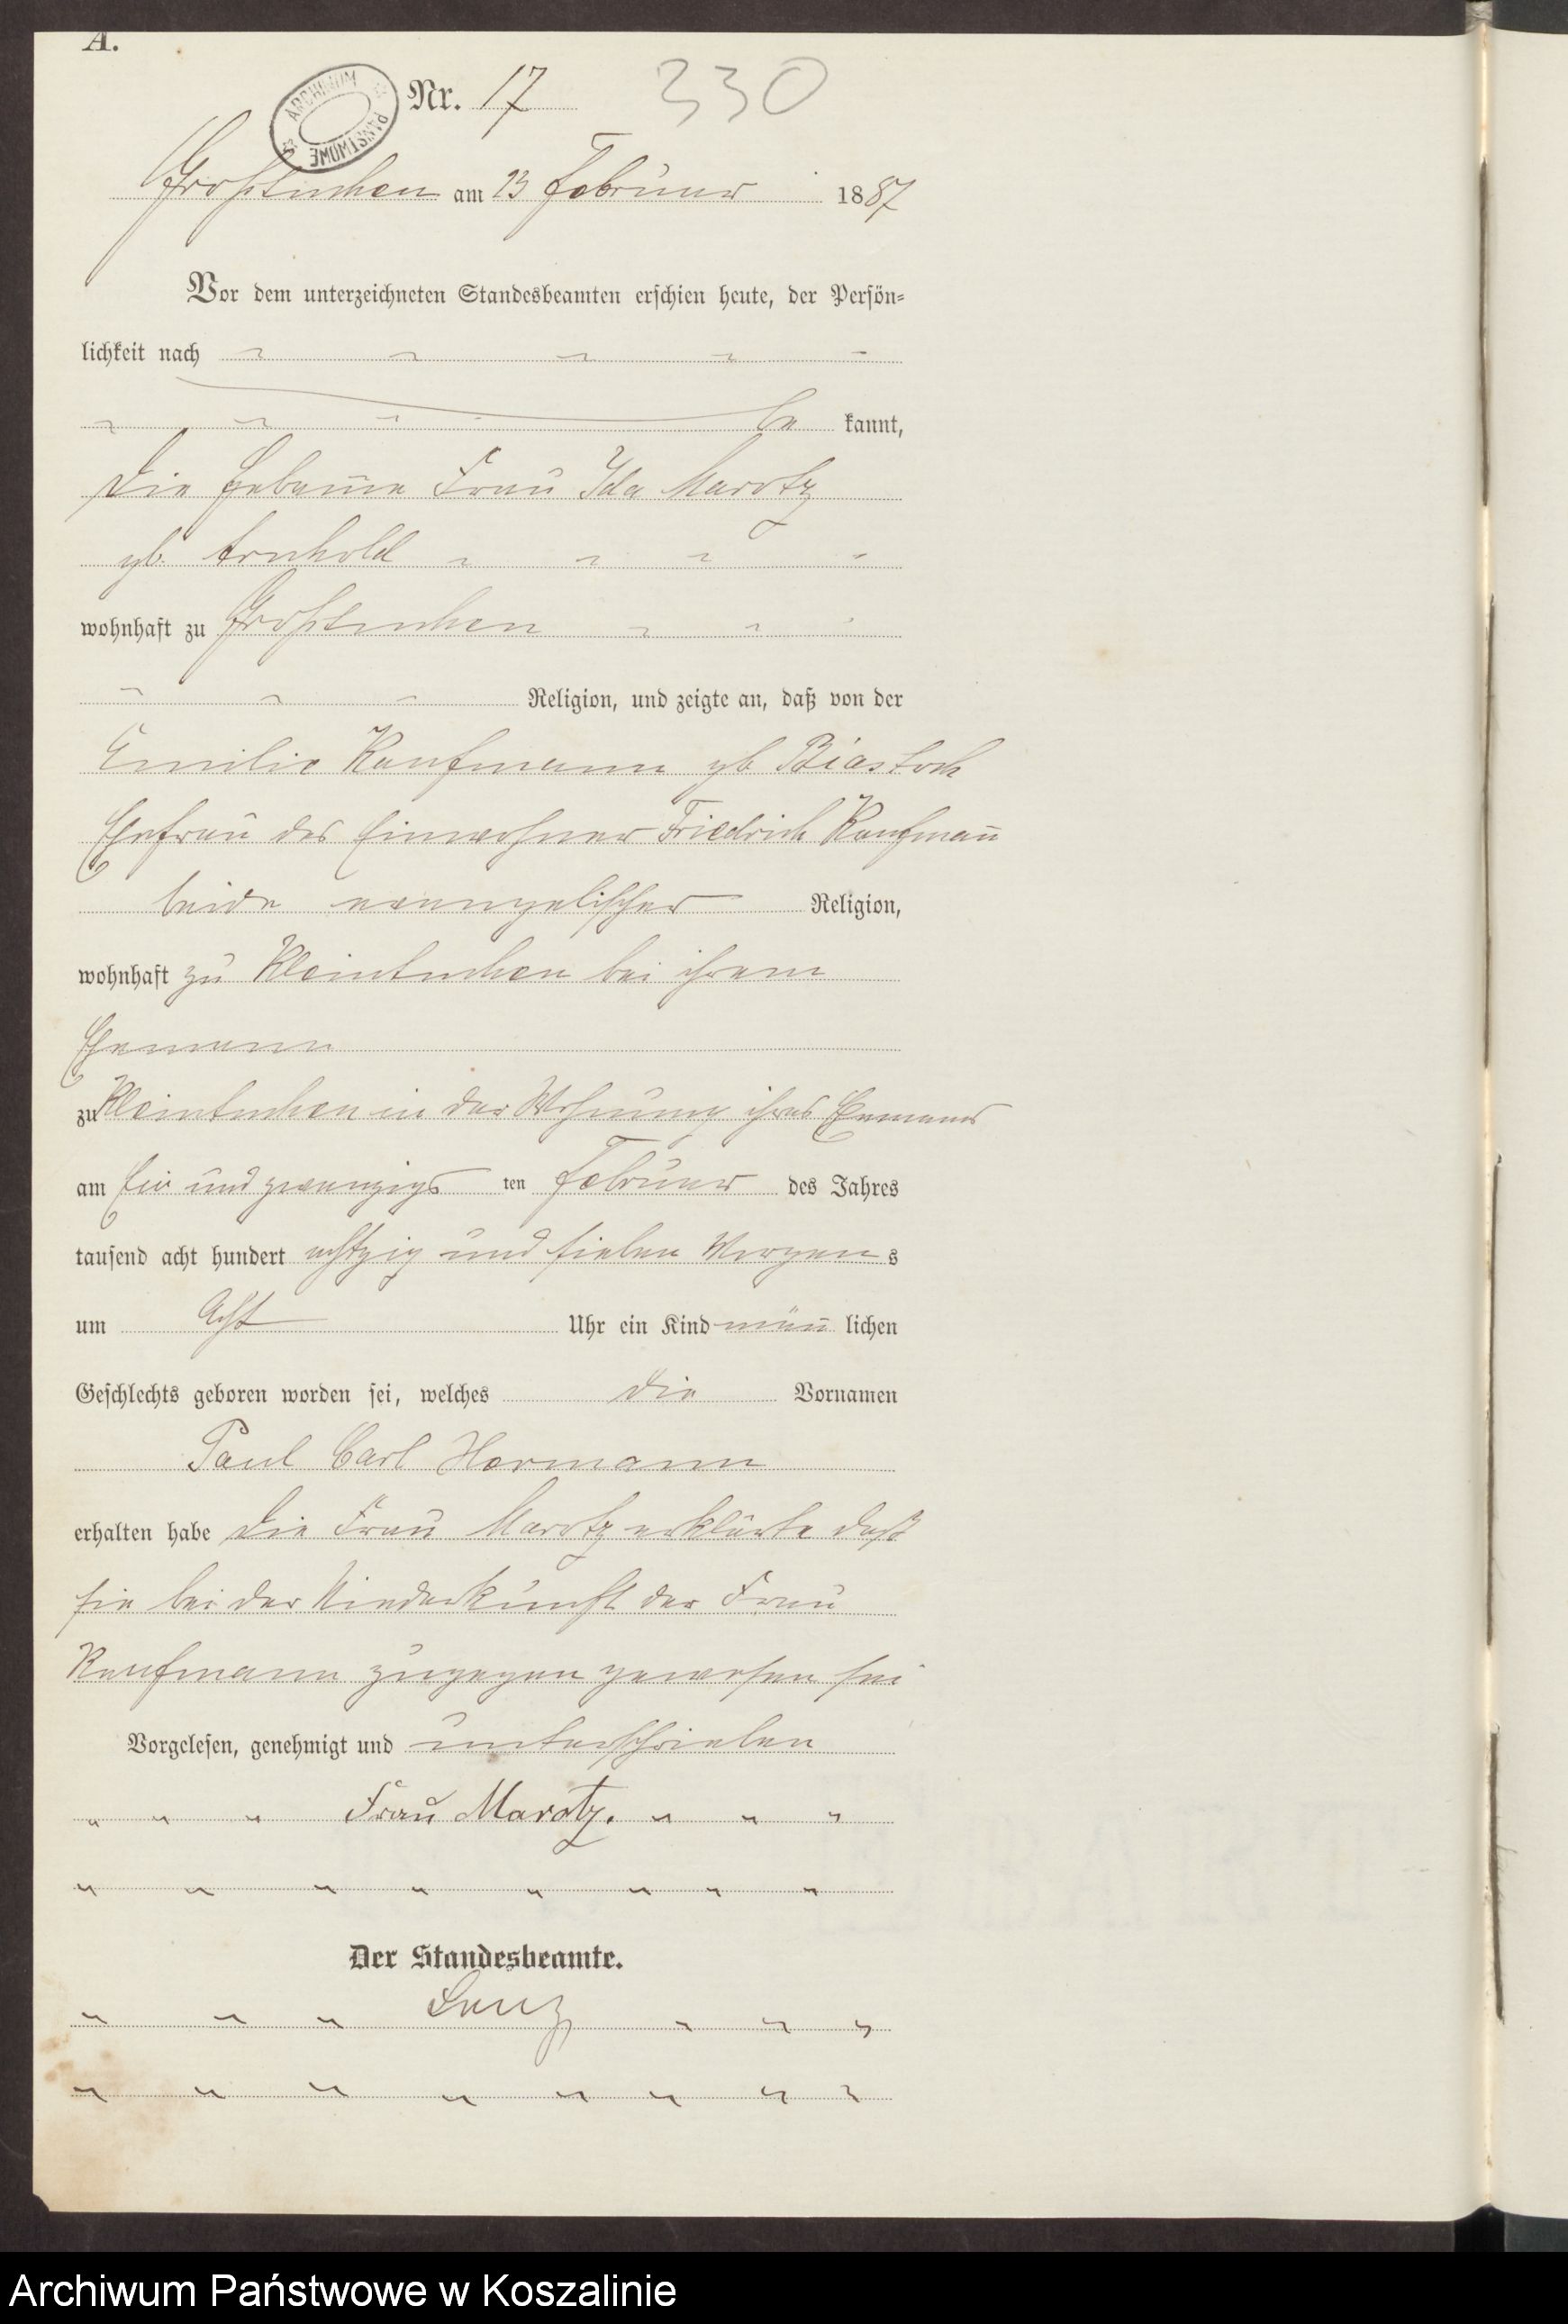 A.
ARCHIWUM PAŃSTWOWE
Nr. 17 330
Großtuchen am 23 Februar 1887
Vor dem unterzeichneten Standesbeamten erschien heute, der Persön-
lichkeit nach
be kannt,
die Hebamme Frau Ida Marotz
gb. Arnhold
wohnhaft zu Großtuchen
Religion, und zeigte an, daß von der
Emilie Kaufmann gb Biastock
Ehefrau des Einwohner Friedrich Kaufmann
beide evangelischer Religion,
wohnhaft zu Kleintuchen bei ihrem
Ehemann
zu Kleintuchen in der Wohnung ihres Ehemanns
am Ein und zwanzigs ten Februar des Jahres
tausend acht hundert achtzig und sieben Morgen s
um Acht Uhr ein Kind männ lichen
Geschlechts geboren worden sei, welches die Vornamen
Paul Carl Hermann
erhalten habe die Frau Marotz erklärte daß
sie bei der Niederkunft der Frau
Kaufmann zugegen gewesen sei
Vorgelesen, genehmigt und unterschrieben
Frau Marotz.
Der Standesbeamte.
Archiwum Państwowe w Koszalinie